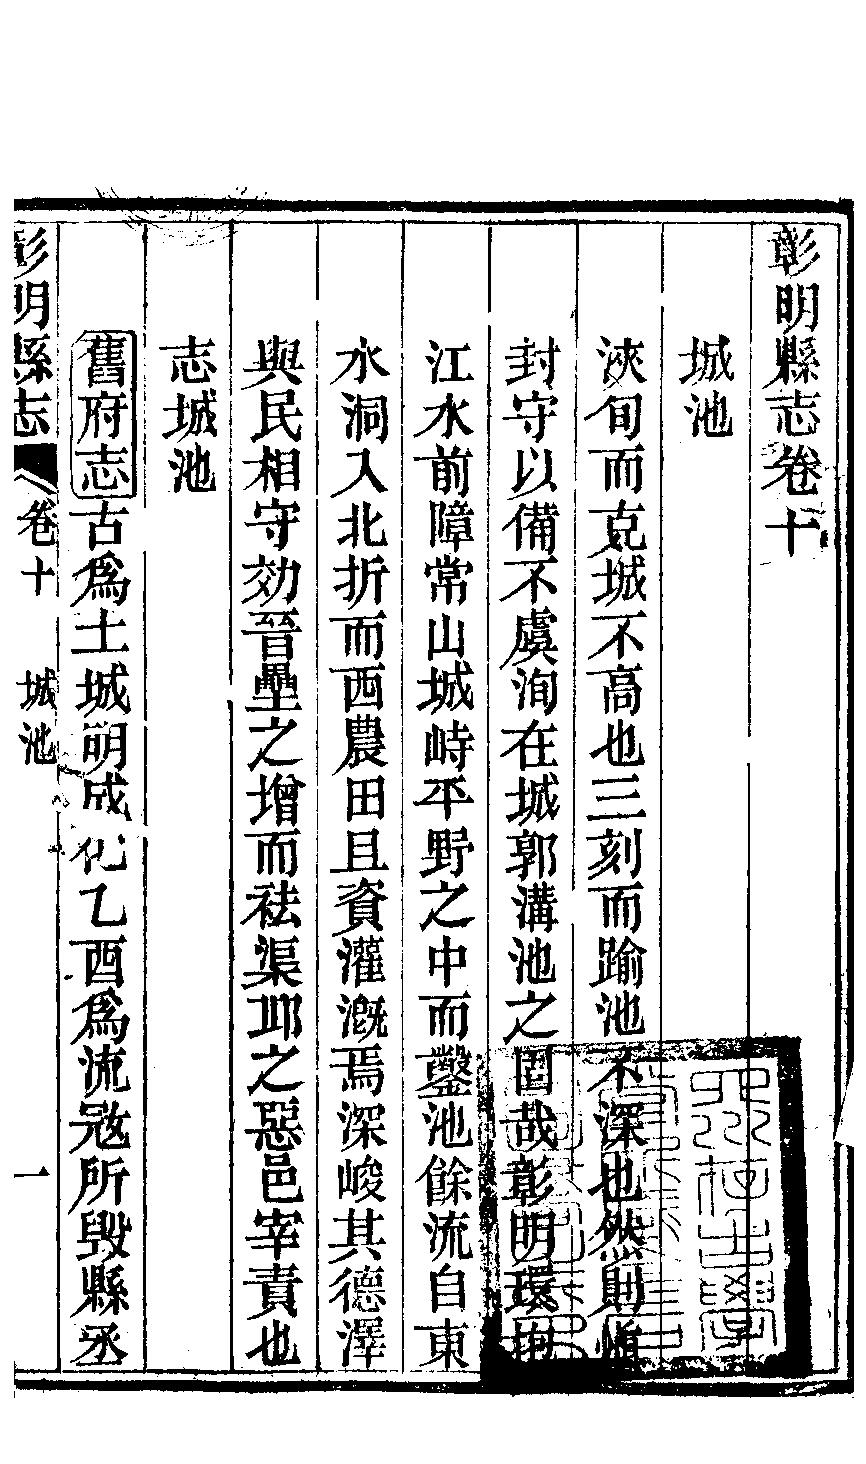 彰明縣志卷十
城池
浹旬而克城不高也三刻而踰池不深也然則愼
封守以備不虞洵在城郭溝池之固哉彰明環抱
江水前障常山城峙平野之中而鑿池餘流自東
水洞入北折而西農田且資灌漑焉深峻其德澤
與民相守効晉壘之增而祛渠丘之惡邑宰責也
志城池
舊府志古爲土城明成化乙酉爲流寇所毀縣丞
彰明縣志 卷十 城池 一